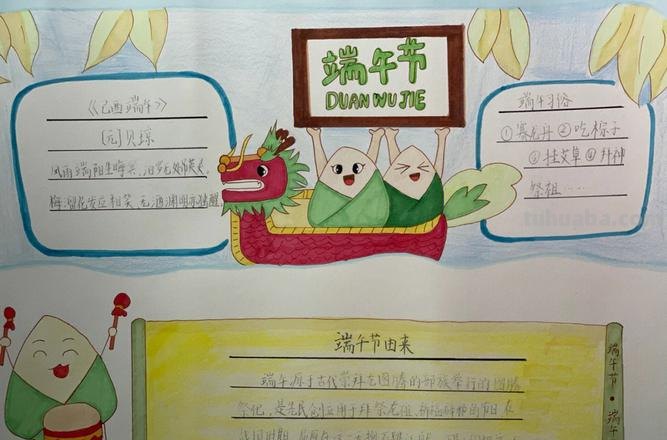 端午节
DUAN WU JIE
《己酉端午》
[元]贝琼
风雨端阳生晦冥，汨罗无处吊英灵，
海榴花发应相笑，无酒渊明亦独醒
端午习俗
①赛龙舟 ②吃粽子
③挂艾草 ④拜神
祭祖……
tuhuaba.com
端午节由来
端午源于古代崇拜龙图腾的部族举行的图腾
祭祀，是先民创立用于拜祭龙祖、祈福辟邪的节日
端午节·端午